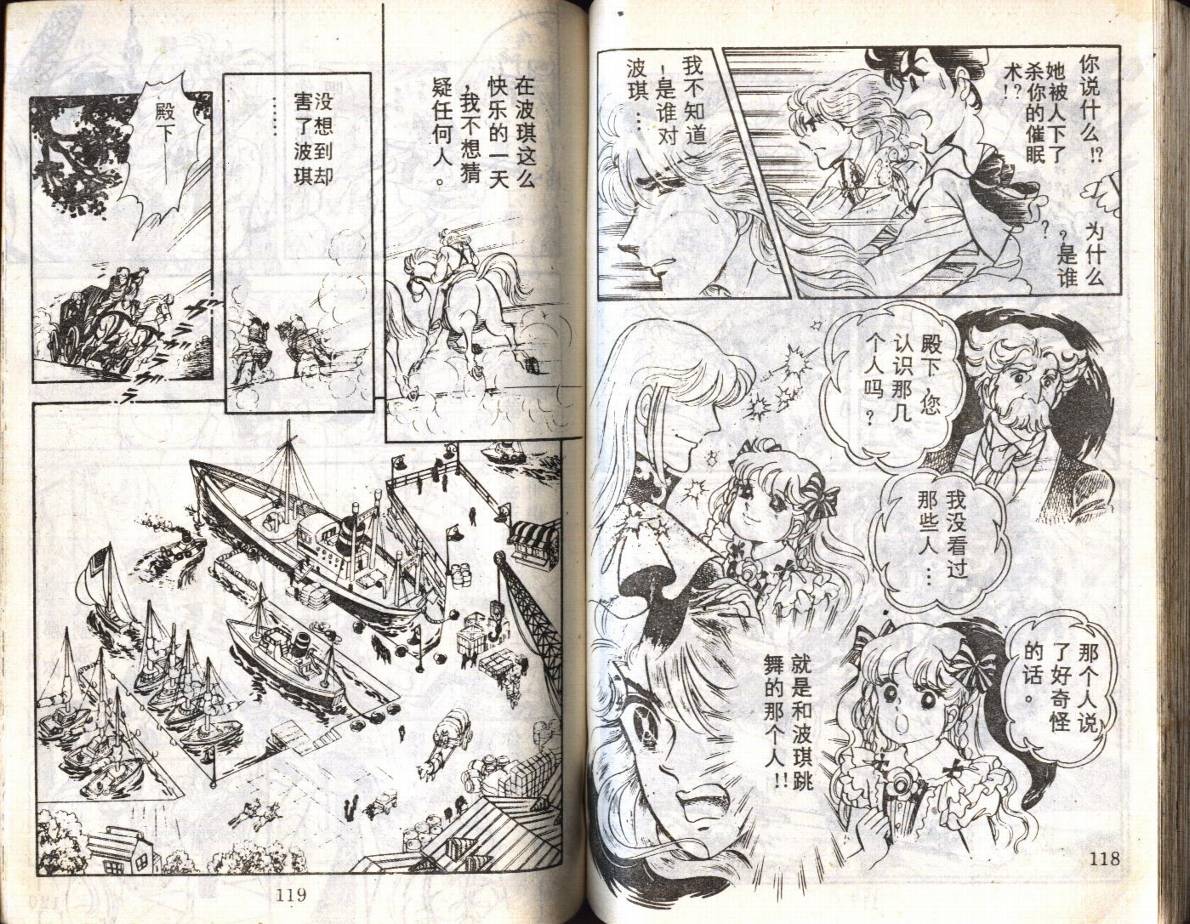 你说什么!?
她被人下了
杀你的催眠
术!?
为什么
?是谁
?
我不知道
是谁对
波琪…
殿下,您
认识那几
个人吗?
我没看过
那些人…
那个人说
了好奇怪
的话。
就是和波琪跳
舞的那个人!!
118
在波琪这么
快乐的一天
,我不想猜
疑任何人。
没想到却
害了波琪
……
殿下—
119